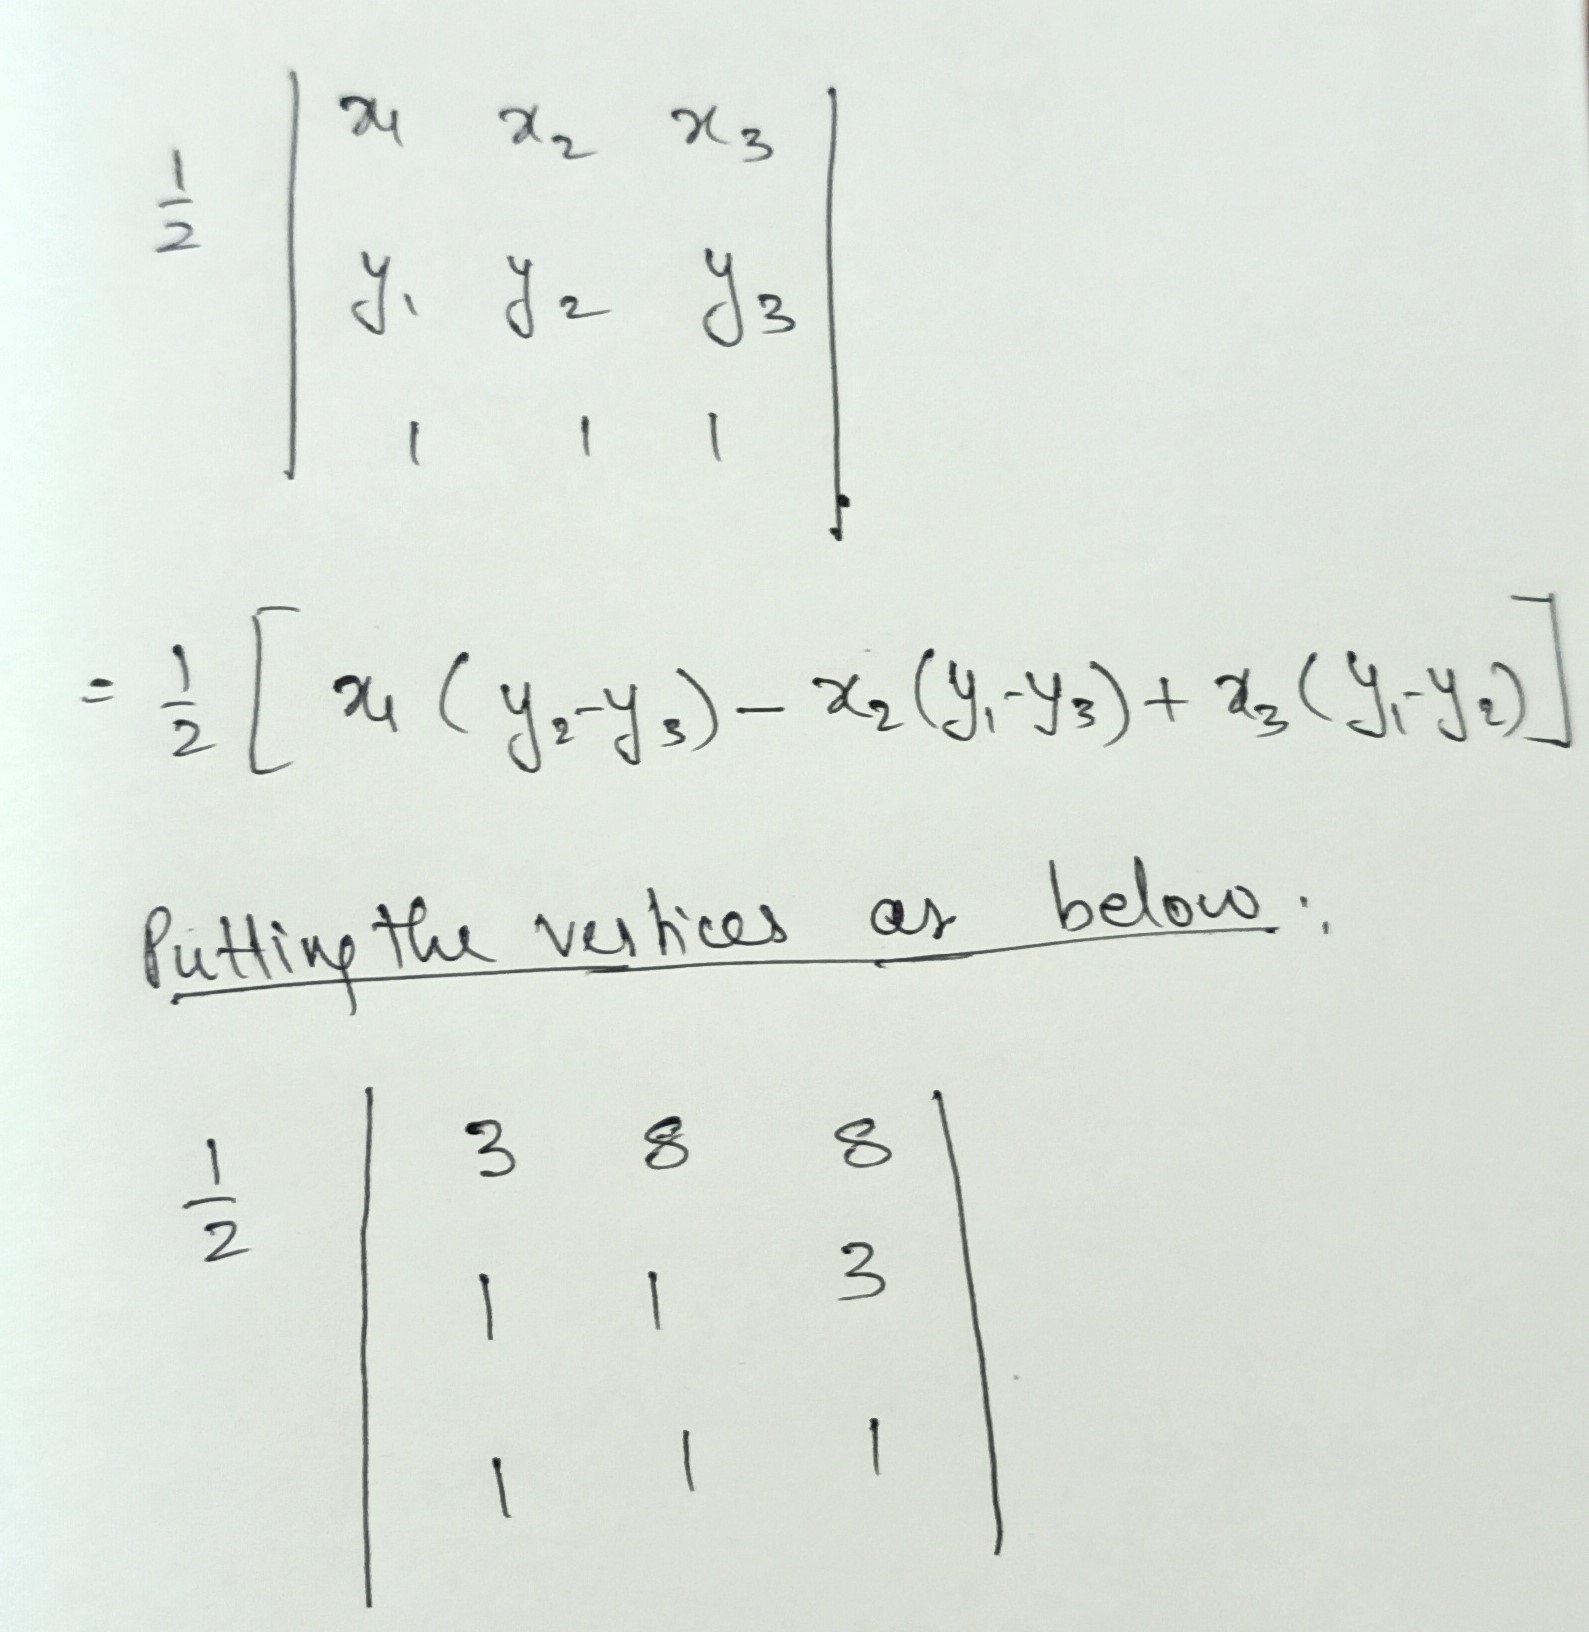 1/2 | x₁ x₂ x₃ |
| y₁ y₂ y₃ |
| 1 1 1 |
= 1/2 [ x₁ ( y₂-y₃) - x₂ (y₁-y₃) + x₃ (y₁-y₂) ]
Putting the vertices as below :
1/2 | 3 8 8 |
| 1 1 3 |
| 1 1 1 |